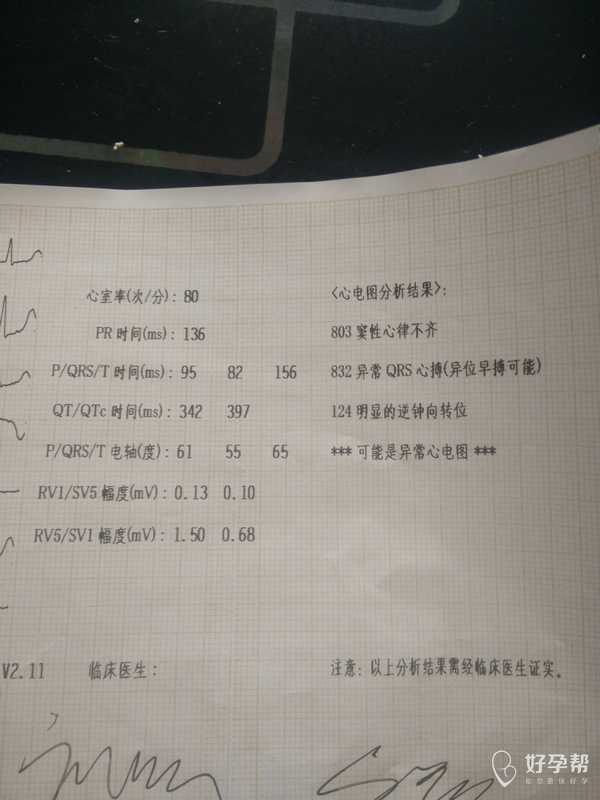 心室率(次/分): 80
PR 时间(ms): 136
P/QRS/T 时间(ms): 95 82 156
QT/QTc 时间(ms): 342 397
P/QRS/T 电轴(度): 61 55 65
RV1/SV5 幅度(mV): 0.13 0.10
RV5/SV1 幅度(mV): 1.50 0.68
<心电图分析结果>:
803 窦性心律不齐
832 异常 QRS 心搏(异位早搏可能)
124 明显的逆钟向转位
*** 可能是异常心电图 ***
V2.11 临床医生:
注意: 以上分析结果需经临床医生证实.
好孕帮
助您更快好孕